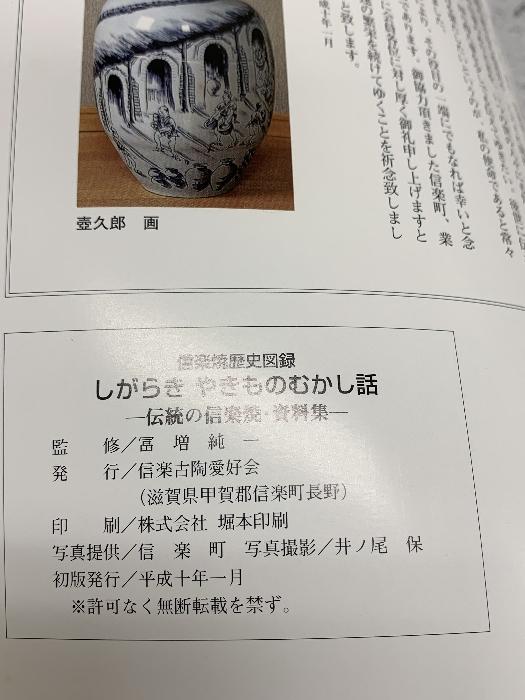 の一端にでもなれば幸いと念
であります。御協力頂きました信楽町、業
に対し厚く御礼申し上げますと
の繁栄を続けてゆくことを祈念致しまし
と致します。
成十年一月
壺久郎 画
信楽焼歴史図録
しがらき やきものむかし話
―伝統の信楽焼・資料集―
監 修／冨 増 純 一
発 行／信楽古陶愛好会
(滋賀県甲賀郡信楽町長野)
印 刷／株式会社 堀本印刷
写真提供／信 楽 町 写真撮影／井ノ尾 保
初版発行／平成十年一月
※許可なく無断転載を禁ず。